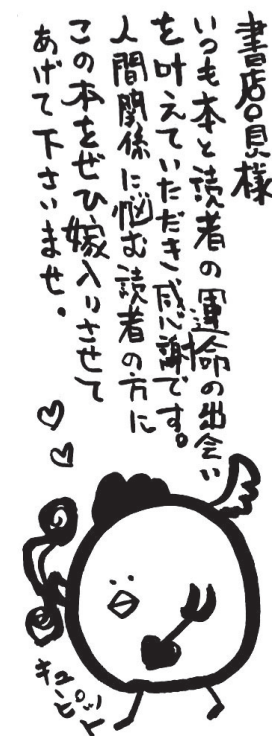 書店員様
いつも本と読者の運命の出会い
を叶えていただき、感謝です。
人間関係に悩む読者の方に
この本をぜひ嫁入りさせて
あげて下さいませ。
キューピット